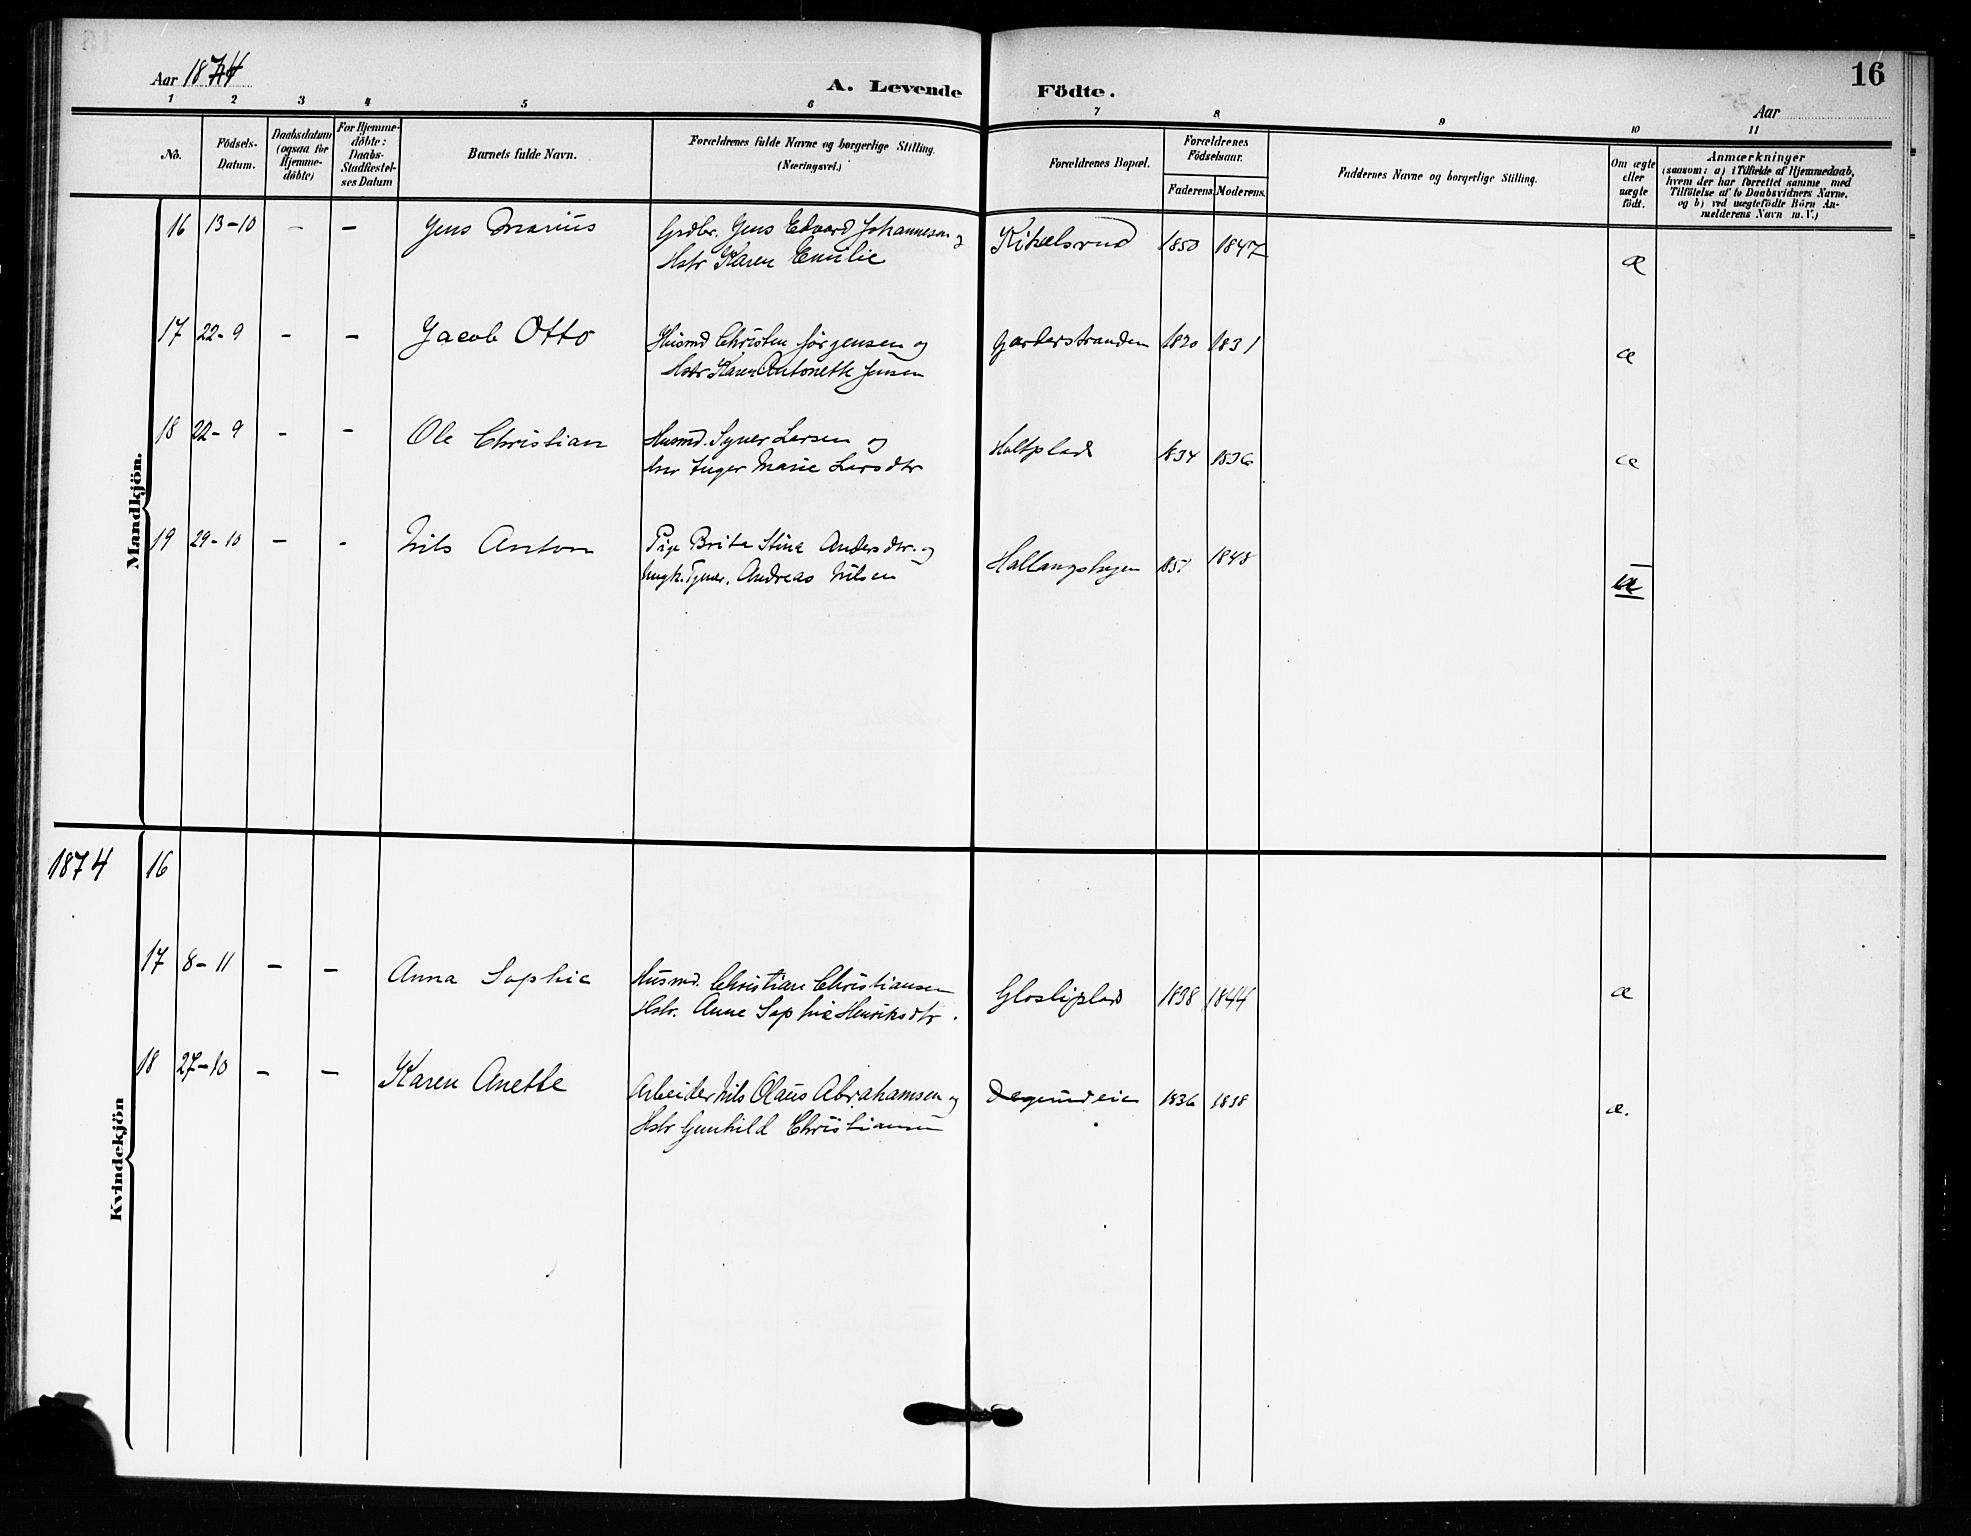 16
Aar 1874
A. Levende Födte.
Aar
1 2 3 4 5 6 7 8 9 10 11
No.
Födsels-Datum.
Daabsdatum (ogsaa for Hjemme-döbte)
For Hjemme-döbte: Daabs-Stadfæstel-ses Datum
Barnets fulde Navn.
Forældrenes fulde Navne og borgerlige Stilling.
(Næringsvei.)
Forældrenes Bopæl.
Forældrenes Födselsaar.
Faderens. Moderens.
Faddernes Navne og borgerlige Stilling.
Om ægte eller uægte födt.
Anmærkninger
(saasom: a) i Tilfælde af Hjemmedaab,
hvem der har forrettet samme med
Tilföielse af to Daabsvidners Navne.
og b) ved uægtefödte Börn An-
melderens Navn m. V.)
Mandkjön.
16 13-10 - - Jens Marius Grdbr. Jens Edvard Johannesen og Kikelsrud 1850 1847 æ
Hstr Karen Emilie
17 22-9 - - Jacob Otto Husmd Christen Jörgensen og Garderstranden 1820 1831 æ
Hstr Karen Antonette Jensen
18 22-9 - - Ole Christian Husmd. Syver Larsen og Holtplads 1834 1836 æ
Inger Marie Larsdtr
19 29-10 - - Nils Anton Pige Brita Stina Andersdtr. og Hallangshagen 1851 1848
Ungk. Andreas Nilsen
1874 16
17 8-11 - - Anna Sophie Husmd. Christian Christiansen Gloslipplads 1838 1844 æ
Hstr. Anne Sophie Henriksdtr.
18 27-10 - - Karen Anette Arbeider Nils Olaus Abrahamsen og Degrundeie 1836 1838 æ.
Hstr Gunhild Christiansen
Kvindekjön